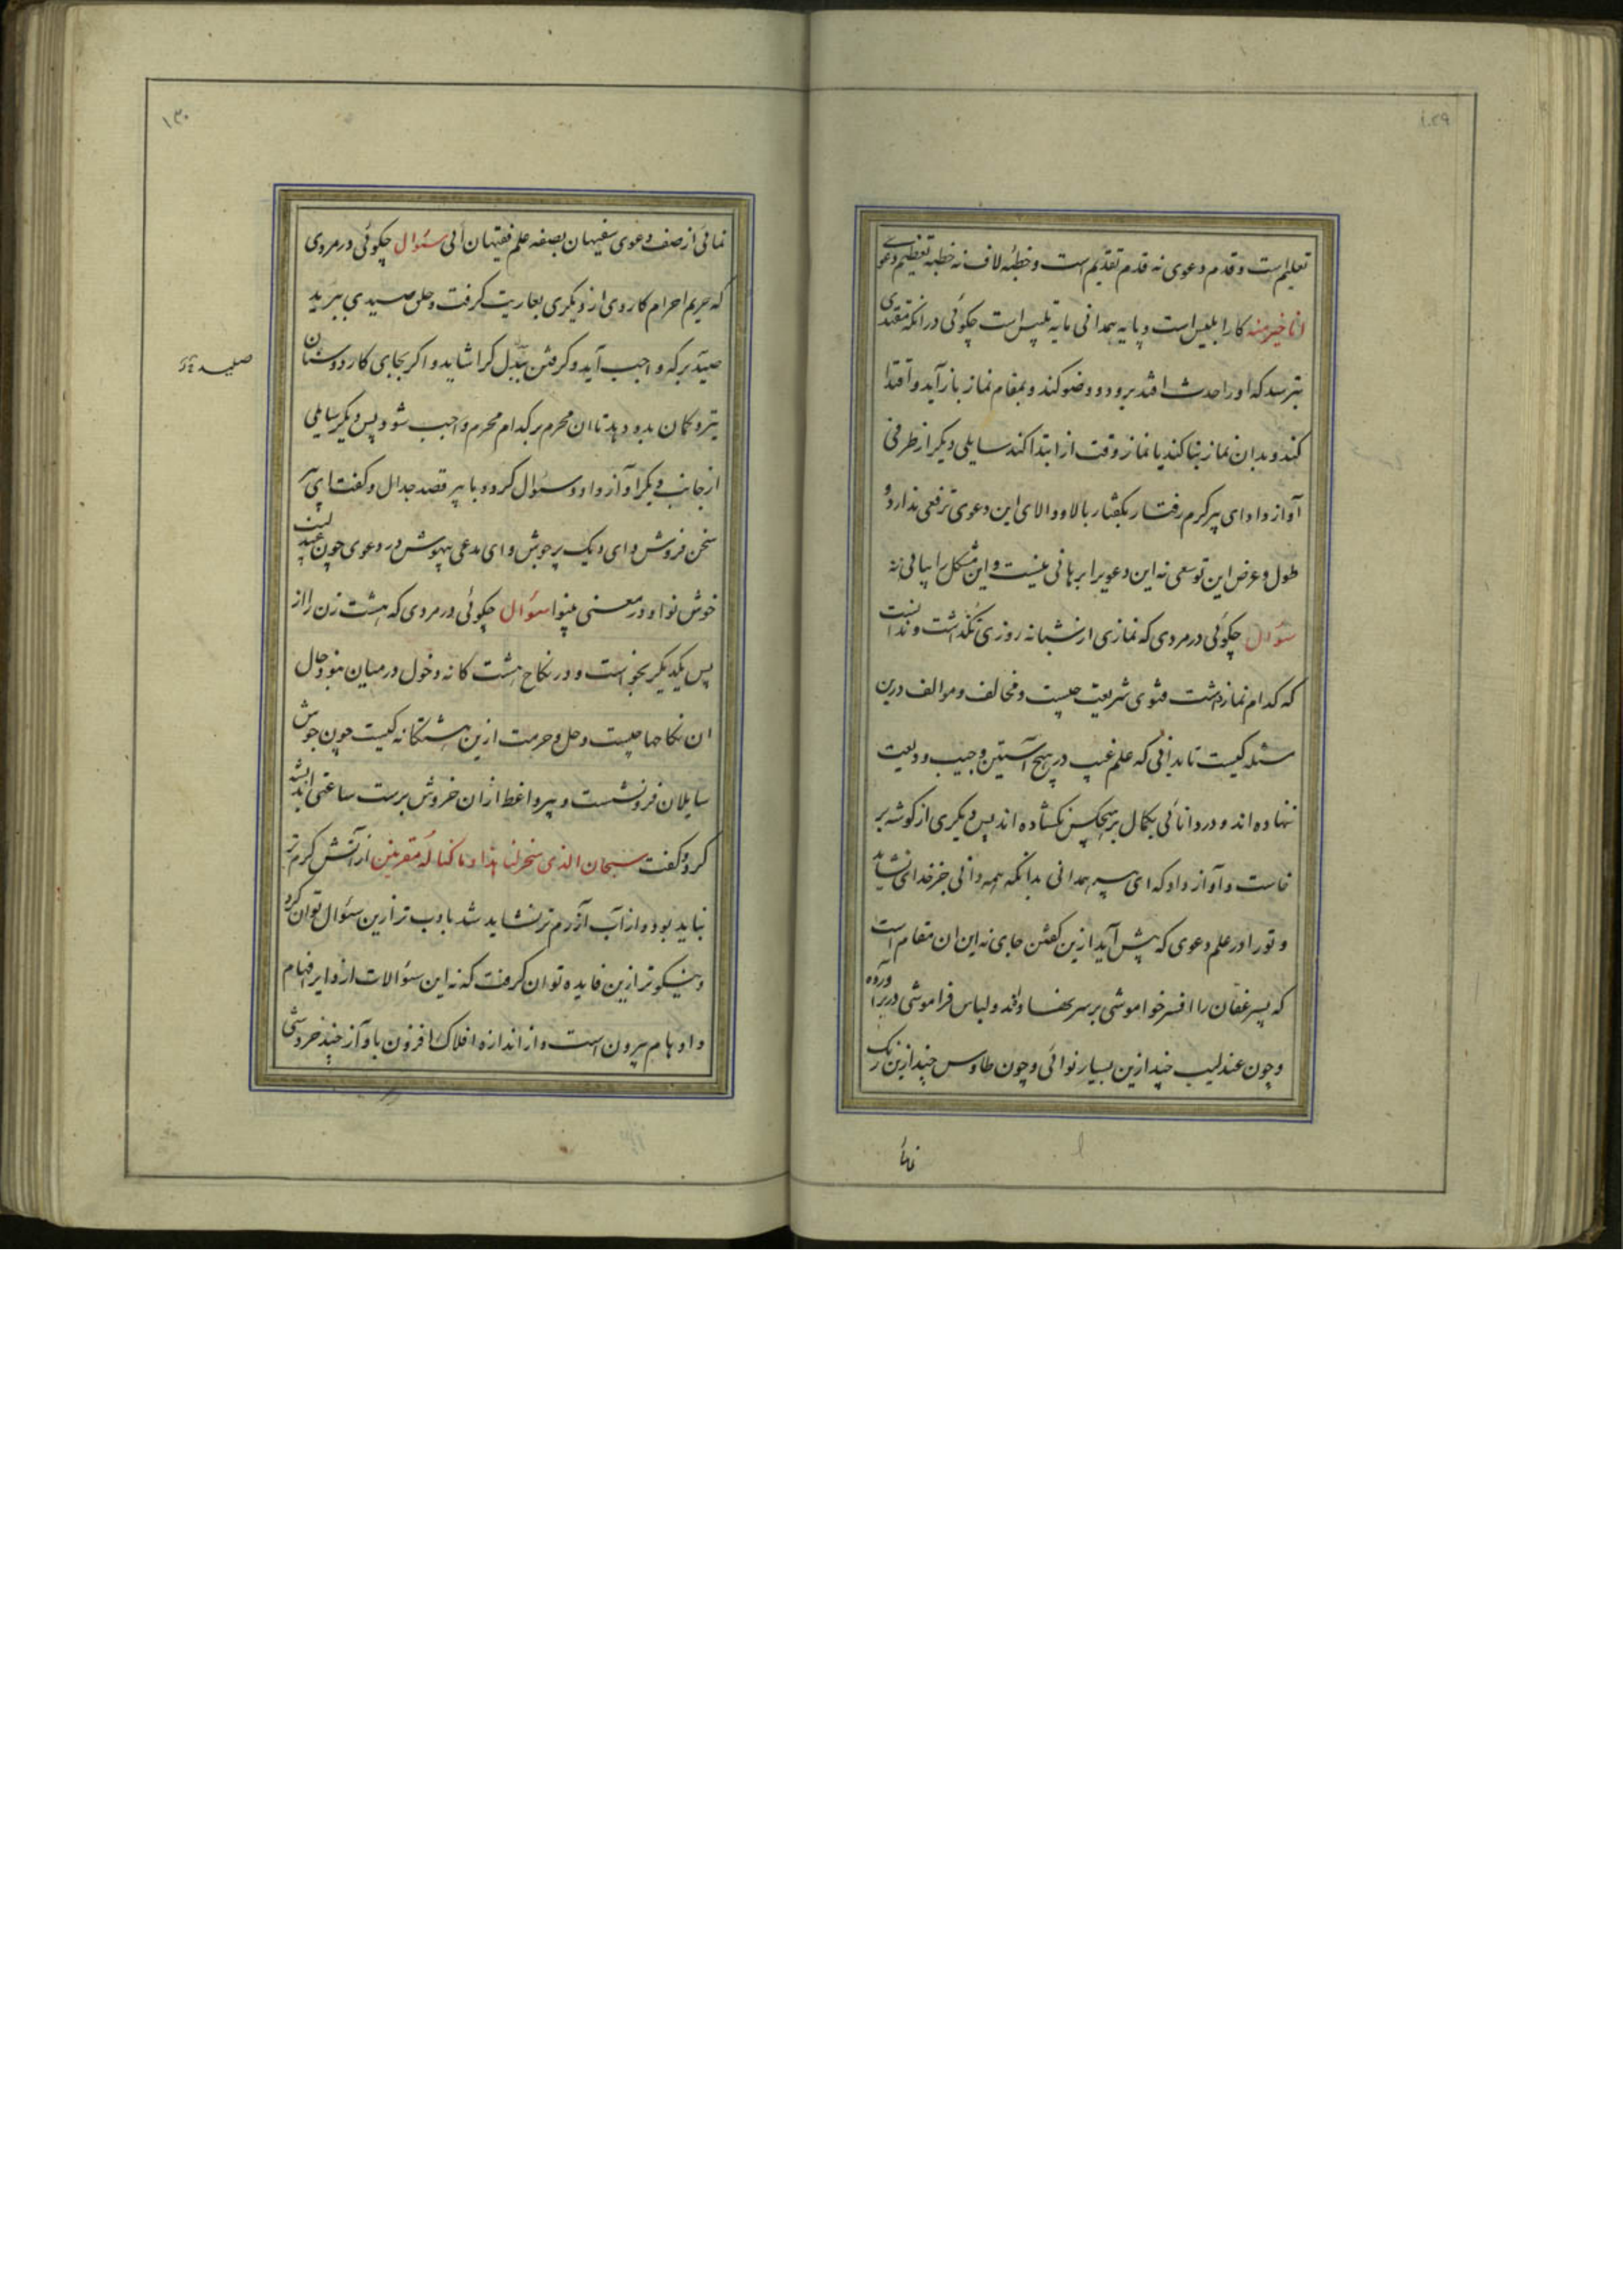 ۱۲۹
تعلیم است و قدم دعوی نه قدم تقدیم است و خطبه لاف نه خطبه تعظیم دعوی
انا خیر منه کار ابلیس است و پایه همدانی مایه تلبیس است چکوئی در انکه مقتدی
بترسد که او را حدث افتد برود و وضو کند و بمقام نماز باز آید و اقتدا
کند و بدان نماز بنا کند یا نماز وقت از ابتدا کند سایلی دیکر از طرفی
آواز داد ای پیر کرم رفتار بکفتار بالا و والای این دعوی ترفعی ندارد و
طول و عرض این توسعی نه این دعویرا برهانی نیست و این مشکل را بیانی نه
سئوال چکوئی در مردی که نمازی از شبانه روزی بکذاشت و ندانست
که کدام نماز است فتوی شریعت چیست و مخالف و موالف درین
مسئله کیست تا بدانی که علم غیب در هیچ آستین و جیب ودیعت
ننهاده اند و در دانائی بکمال بر هیچکس نکشاده اند پس دیکری از کوشه بر
خاست و آواز داد که ای پیر همدانی بدانکه همه دانی جز خدای نشاید
و تو را در علم دعوی که پیش آید ازین کفتن جای نه این ان مقام است
که پسر عفان را افسر خواموشی بر سر نهاده اند و لباس فراموشی در بر آورده
و چون عندلیب چند ازین بسیار نوائی و چون طاوس چند ازین رنک
نمائ
۱۳۰
نمائی از صف دعوی سفیهان بصفه علم فقیهان آئی سئوال چکوئی در مردی
که حریم احرام کاردی از دیکری بعاریت کرفت و حلق صیدی ببرید
صید بر که واجب آید و کرفتن بدل کرا شاید و اکر بجای کارد دوستان
تیر و کمان بدو دهد تاوان محرم بر کدام محرم واجب شود پس دیکر سایلی
از جانب دیکر آواز داد و سئوال کرد و با پیر قصد جدال و کفت ای پیر
سخن فروش و ای دیک پر جوش و ای مدعی بیهوش در دعوی چون عندلیب
خوش نوا و در معنی بینوا سئوال چکوئی در مردی که هشت زن را از
پس یکدیکر بخواست و در نکاح هشت کانه دخول در میان نبود حال
ان نکاحها چیست و حل و حرمت ازین هشتکانه کیست چون جوش
سایلان فرو نشست و پیر واعظ از ان خروش برست ساعتی اندیشه
کرد و کفت سبحان الذی سخر لنا هذا و ما کنا له مقرنین از آتش کرم تر
نباید بود و از آب آزرم تر نشاید شد بادب تر ازین سئوال توان کرد
و نیکو تر ازین فایده توان کرفت که نه این سئوالات از دایره افهام
و اوهام بیرون است و از اندازه افلاک افزون باواز چند خروشی